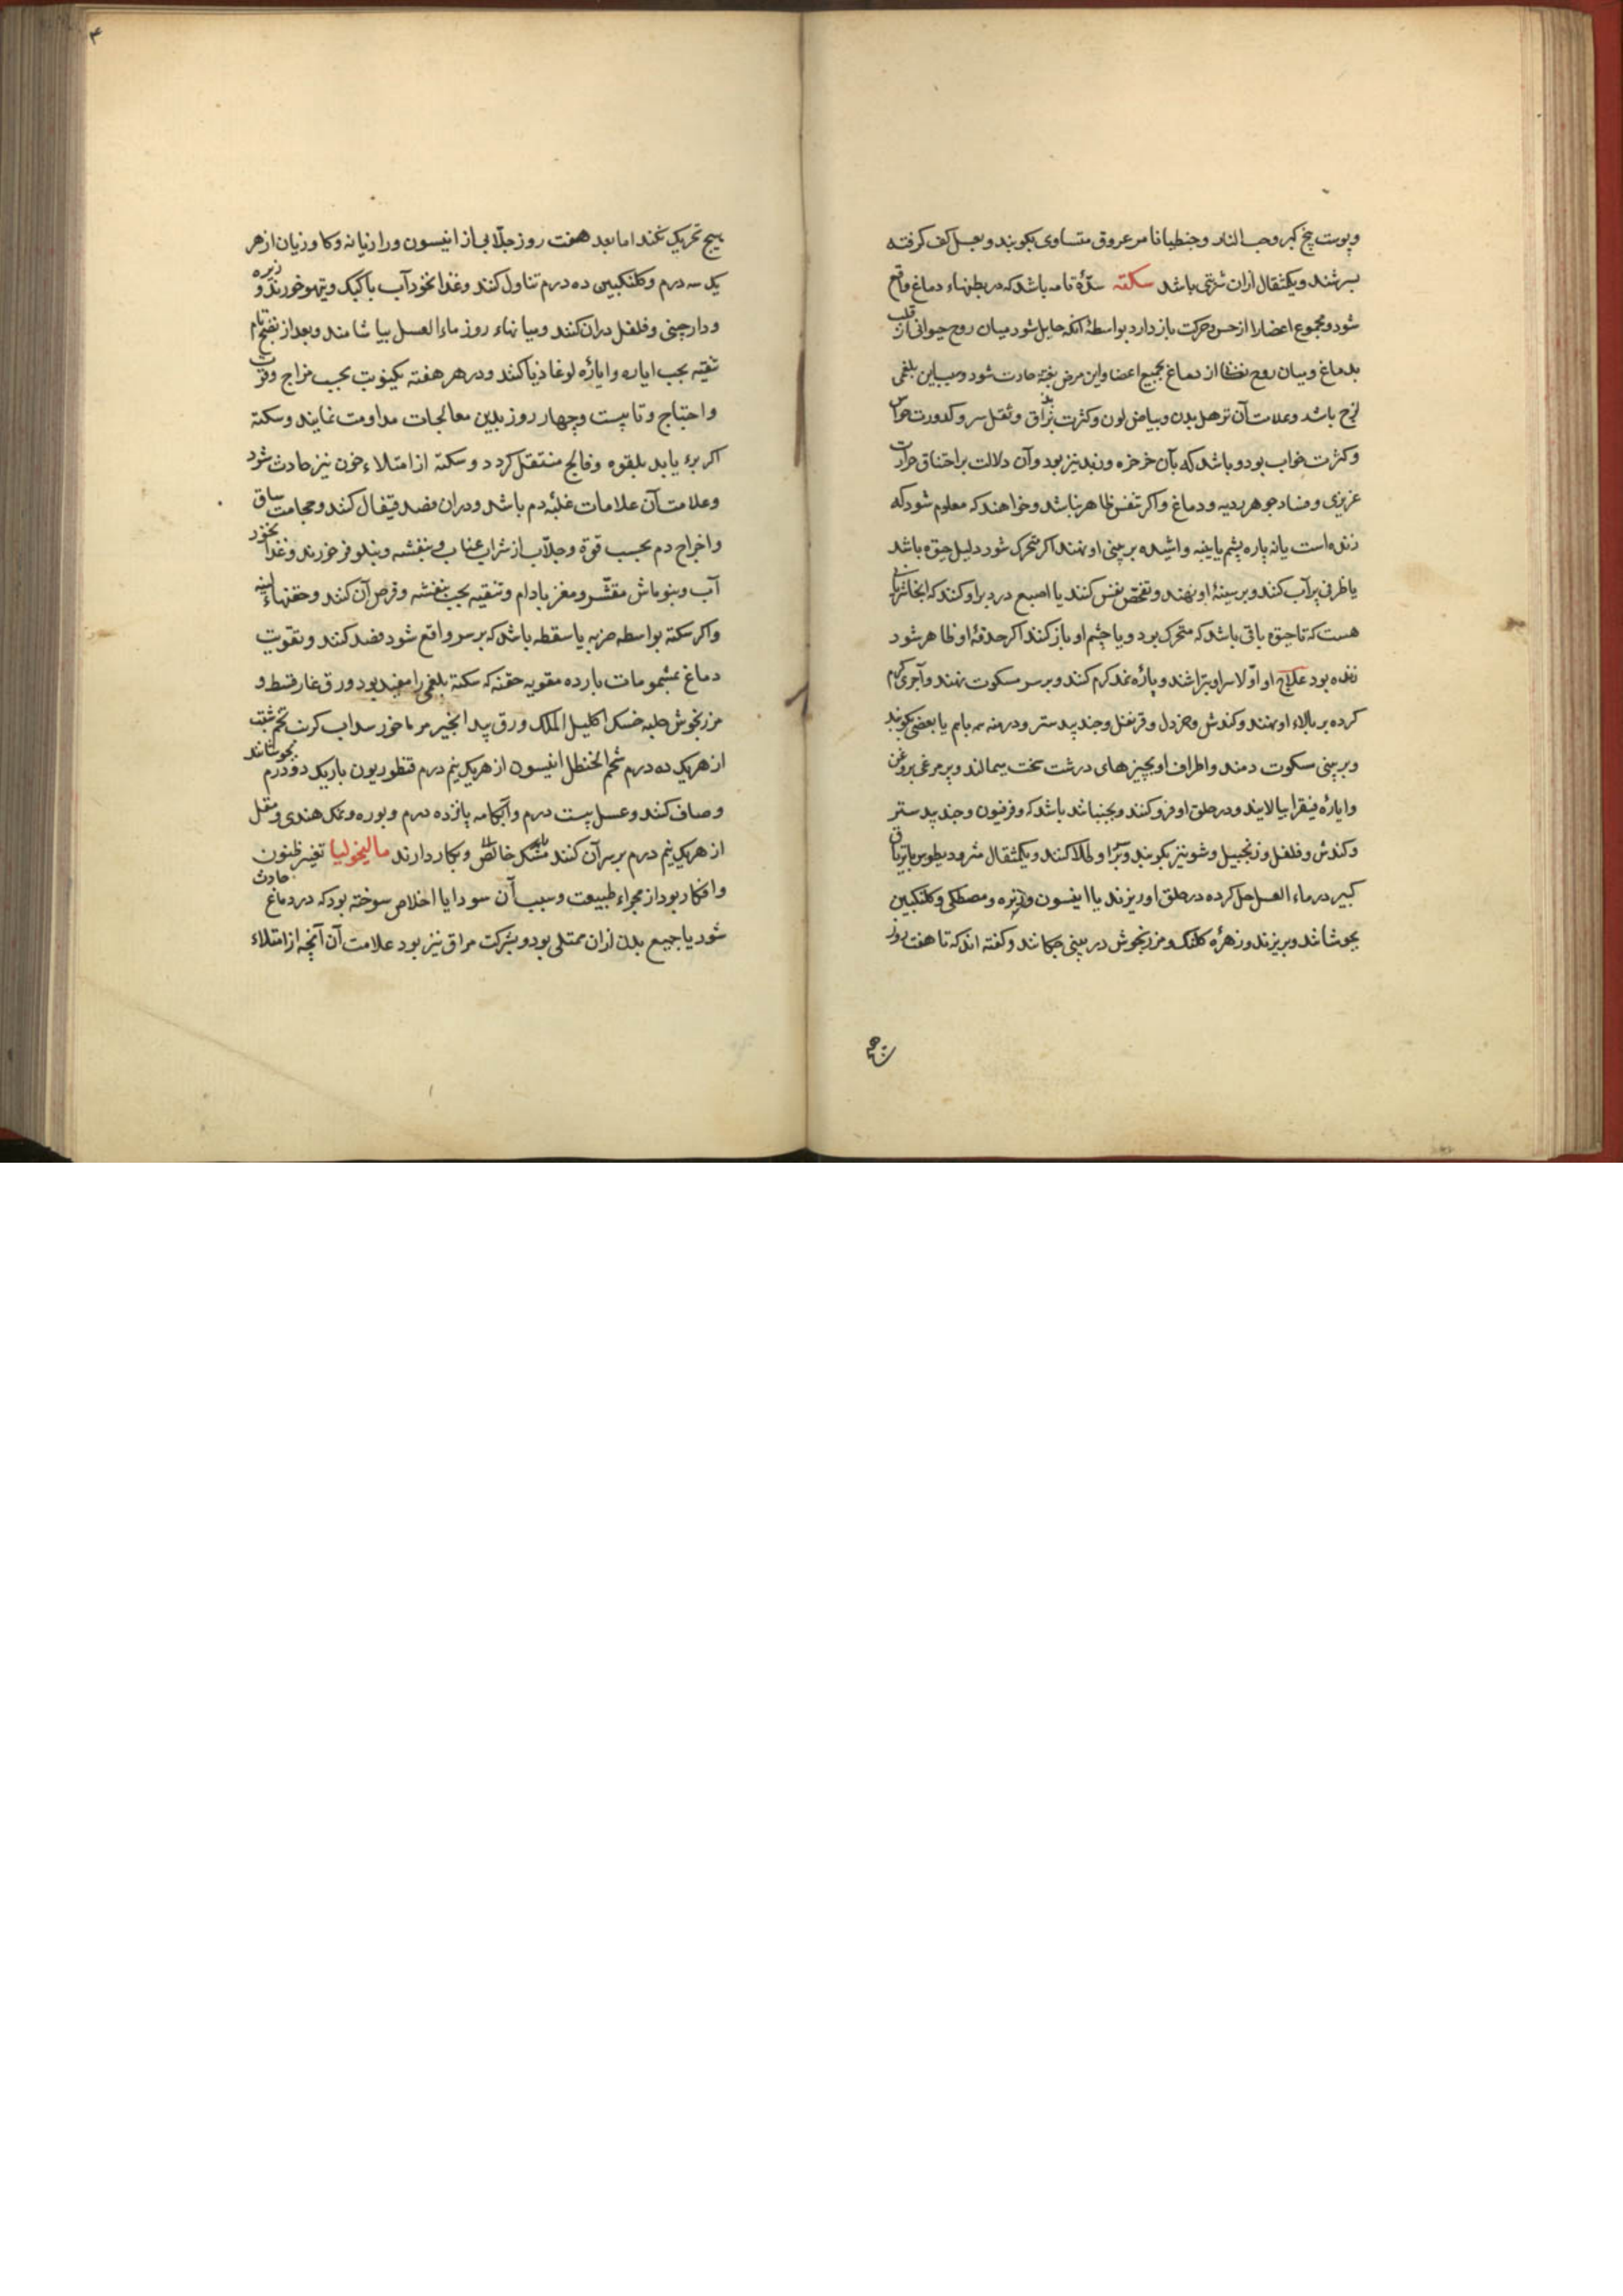 وپوست بیخ کبر وحب الغار وجنطیانا مر عروق متساوی بکوبند وبعسل کف گرفته
بسرشند ویکمثقال ازان شربتی باشد سکته سدّهٔ تامه باشد که در بطنهاء دماغ واقع
شود ومجموع اعضا را از حس وحرکت باز دارد بواسطهٔ آنکه حایل شود میان روح حیوانی از قلب
بدماغ ومیان روح نفسانی از دماغ بجمیع اعضا واین مرض بغتة حادث شود وسبب این بلغمی
لزج باشد وعلامت آن ترهل بدن وبیاض لون وکثرت بزاق وثقل سر وکدورت حواس
وکثرت خواب بود وباشد که بآن خرخره وزبد نیز بود وآن دلالت بر اختناق حرارت
غریزی وفساد جوهر ریه ودماغ واگر تنفس ظاهر نباشد وخواهند که معلوم شود که
زنده است یا نه پاره پشم یا پنبه واشیده بر بینی او نهند اگر متحرک شود دلیل حیوة باشد
یا ظرفی پر آب کنند وبر سینهٔ او نهند وتفحص نفس کنند یا اصبع در دبر او کنند که آنجا شریانی
هست که تا حیوة باقی باشد که متحرک بود ویا چشم او باز کنند اگر حدقهٔ او ظاهر شود
زنده بود علاج او اولا سر او بتراشند وپارهٔ نمد گرم کنند وبر سر مسکوت نهند وآجری گرم
کرده بر بالاء او نهند وکندش وخردل وقرنفل وجند بیدستر ودرمنه همه باهم یا بعضی بکوبند
وبر بینی مسکوت دمند واطراف او بچیزهای درشت سخت بمالند وپر مرغی بروغن
وایارهٔ فیقرا بیالایند ودر حلق او فرو کنند وبجنبانند باشد که وفرفیون وجند بیدستر
وکندش وفلفل وزنجبیل وشونیز بکوبند وبر سر او طلا کنند ویکمثقال مثرودیطوس یا تریاق
کبیر در ماء العسل حل کرده در حلق او ریزند یا انیسون وزیره ومصطکی وگلنگبین
بجوشانند وبریزند وزهرهٔ کلنگ ومرزنجوش در بینی چکانند وگفته اند که تا هفت روز
هیچ
۴
هیچ تحریک نکند اما بعد هفت روز جلابی از انیسون ورازیانه وگاوزبان از هر
یک سه درم وگلنگبین ده درم تناول کنند وغذا نخود آب با کبک وتیهو خورند وزیره
ودارچینی وفلفل دران کنند ومیانهاء روز ماء العسل بیاشامند وبعد از نضج تام
تنقیه بحب ایاره وایارهٔ لوغاذیا کنند ودر هر هفته یکنوبت بحسب مزاج وقوت
واحتیاج وتا بیست وچهار روز بدین معالجات مداومت نمایند وسکته
اگر برء یابد بلقوه وفالج منتقل گردد وسکته از امتلاء خون نیز حادث شود
وعلامت آن علامات غلبهٔ دم باشد ودران فصد قیفال کنند وحجامت ساق
واخراج دم بحسب قوة وجلاب از شراب عناب وبنفشه ونیلوفر خورند وغذا نخود
آب وبنوماش مقشر ومغز بادام وتنقیه بحب بنفشه وقرص آن کنند وحقنهاء لینه
واگر سکته بواسطه ضربه یا سقطه باشد که بر سر واقع شود فصد کنند وتقویت
دماغ بمشمومات بارده مقویه حقنه که سکتهٔ بلغمی را مفید بود ورق غار قسط و
مرزنجوش حلبه خسک اکلیل الملک ورق بید انجیر مرماخوز سداب کرنب تخم شبت
از هر یک ده درم شحم الحنظل انیسون از هر یک نیم درم قنطوریون باریک دو درم بجوشانند
وصاف کنند وعسل بیست درم وآبکامه پانزده درم وبوره ونمک هندی ومقل
از هر یک نیم درم بر سر آن کنند مشک خالص وبکار دارند مالیخولیا تغیر ظنون
وافکار بود از مجراء طبیعت وسبب آن سودا یا اخلاص سوخته بود که در دماغ حادث
شود یا جمیع بدن ازان ممتلی بود وبشرکت مراق نیز بود علامت آن آنچه از امتلاء